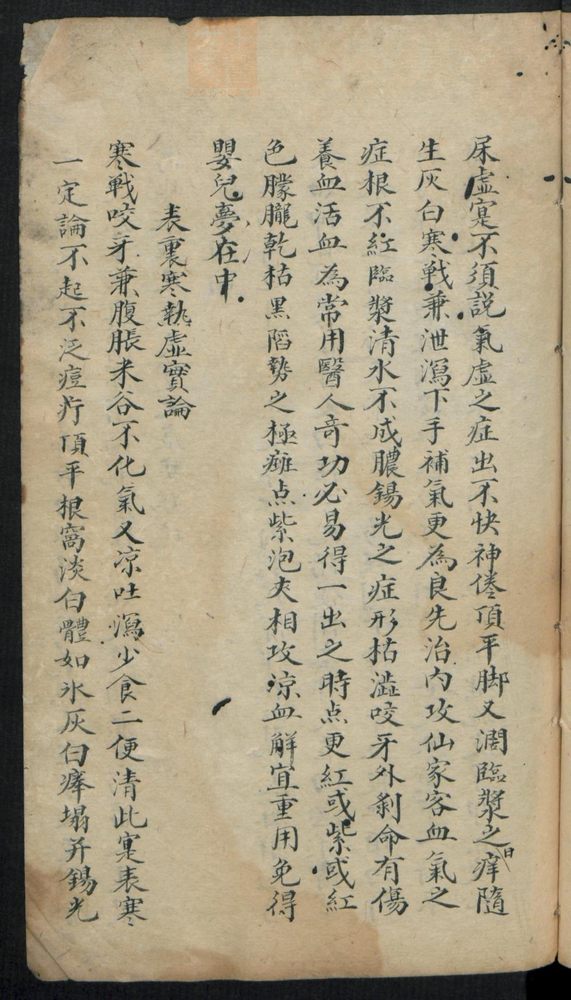 尿虛寔不須説氣虛之症出不快神倦頂平脚又濶臨漿之日痒隨
生灰白寒戰兼泄瀉下手補氣更為良先治內攻仙家客血氣之
症根不紅臨漿清水不成膿錫光之症形枯澁咬牙外剝命有傷
養血活血為常用醫人奇功必易得一出之時点更紅或紫或紅
色朦朧乾枯黑陷勢之極癍点紫泡夾相攻凉血解宜重用免得
嬰兒夢在中
表裏寒執虛實論
寒戰咬牙兼腹脹米谷不化氣又凉吐瀉少食二便清此寔表寒
一定論不起不泛痘疔頂平根窩淡白體如氷灰白痒塌并錫光